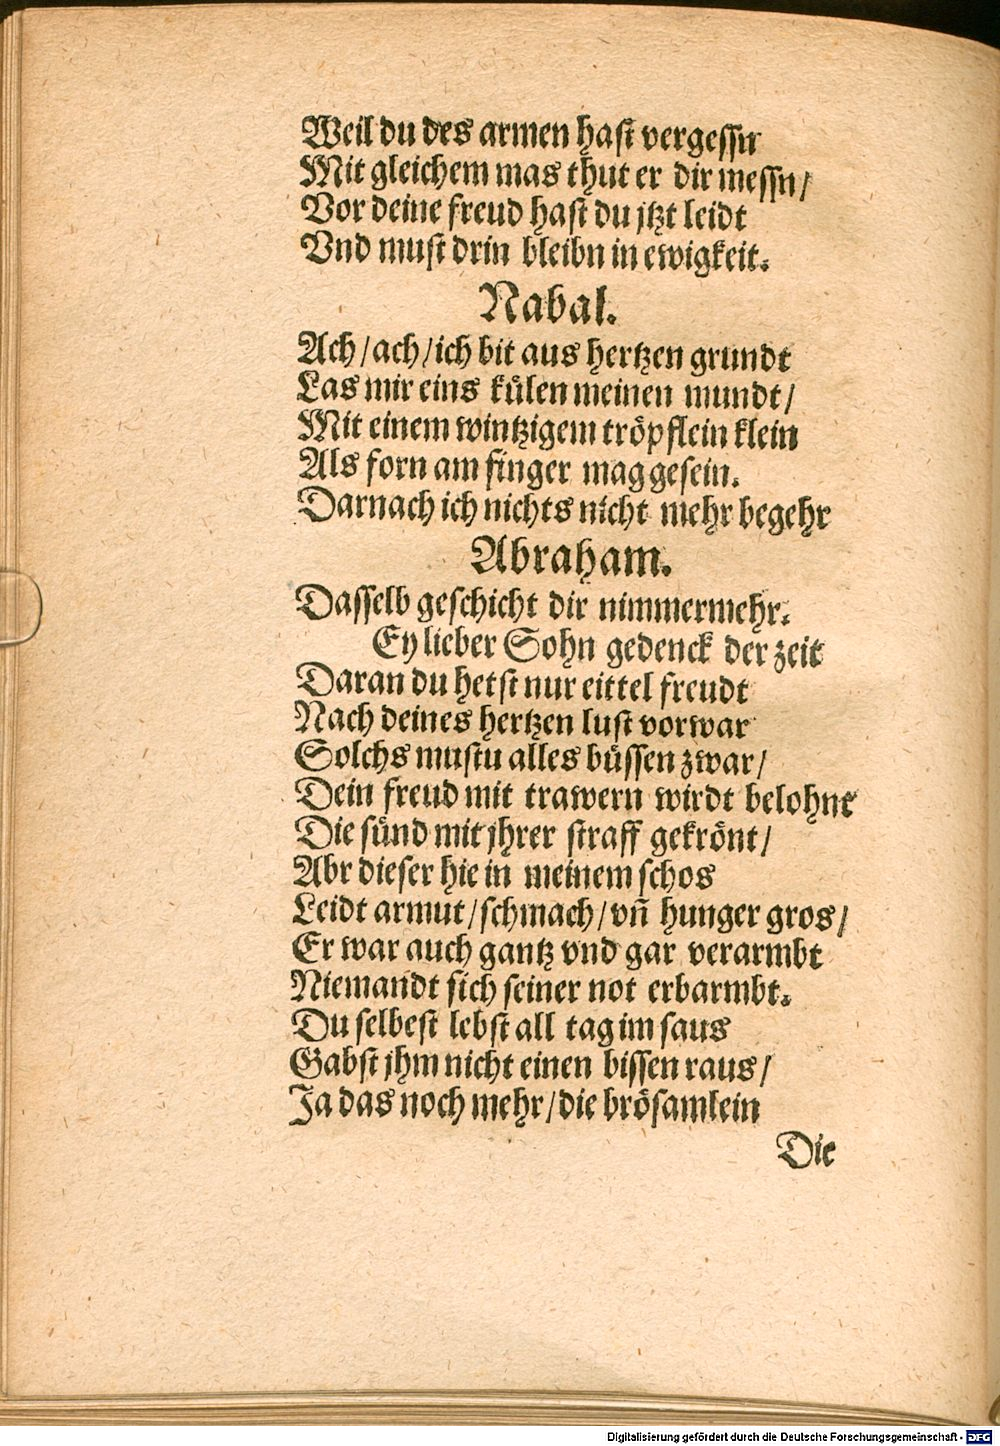 Weil du des armen haſt vergeſſn
Mit gleichem mas thut er dir meſſn/
Vor deine freud haſt du jtzt leidt
Vnd muſt drin bleibn in ewigkeit.
Nabal.
Ach/ach/ich bit aus hertzen grundt
Las mir eins külen meinen mundt/
Mit einem wintzigem tröpflein klein
Als forn am finger mag geſein.
Darnach ich nichts nicht mehr begehr
Abraham.
Daſſelb geſchicht dir nimmermehr.
Ey lieber Sohn gedenck der zeit
Daran du hetſt nur eittel freudt
Nach deines hertzen luſt vorwar
Solchs muſtu alles büſſen zwar/
Dein freud mit trawern wirdt belohnt
Die ſünd mit jhrer ſtraff gekrönt/
Abr dieſer hie in meinem ſchos
Leidt armut/ſchmach/vñ hunger gros/
Er war auch gantz vnd gar verarmbt
Niemandt ſich ſeiner not erbarmbt.
Du ſelbeſt lebſt all tag im ſaus
Gabſt jhm nicht einen biſſen raus/
Ja das noch mehr/die bröſamlein
Die
Digitalisierung gefördert durch die Deutsche Forschungsgemeinschaft - DFG